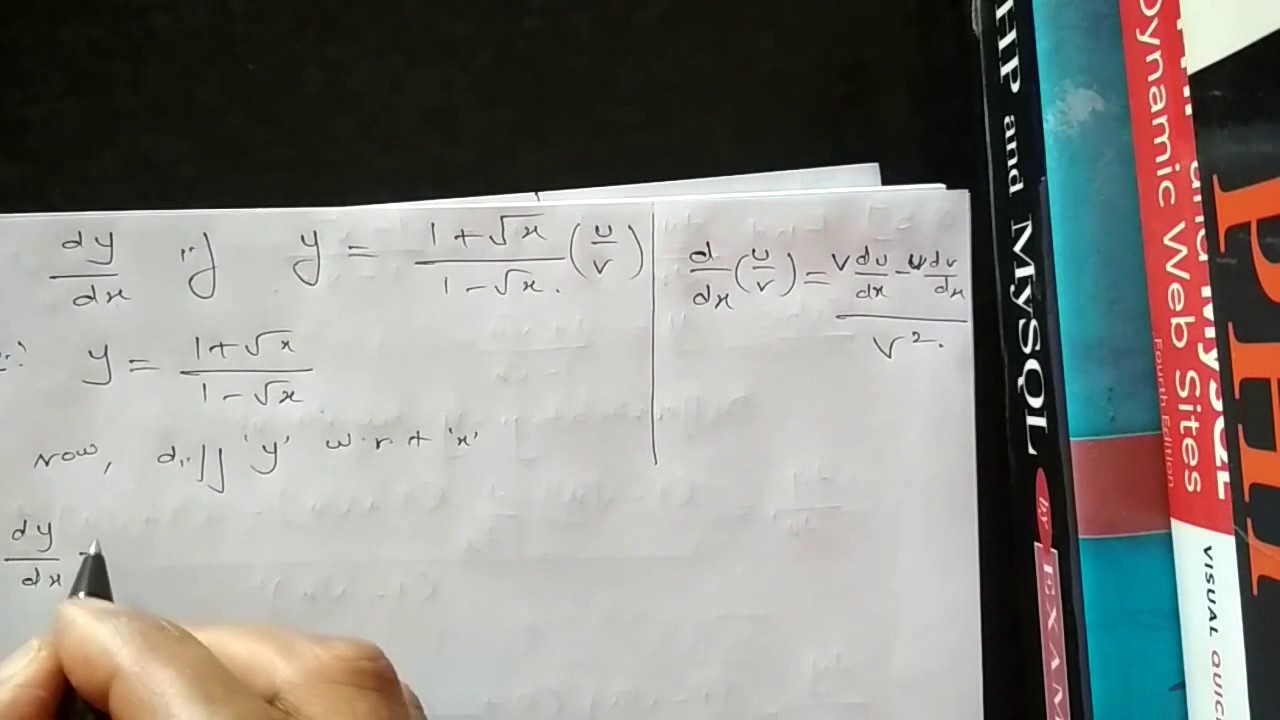 dy/dx if y = (1+√x)/(1-√x). (u/v)
d/dx (u/v) = (v du/dx - u dv/dx)/v².
y = (1+√x)/(1-√x)
Now, diff 'y' w.r.t 'x'
dy/dx
HP and MySQL by EXAM
Dynamic Web Sites
Fourth Edition
and MySQL
VISUAL QUIC
PHP